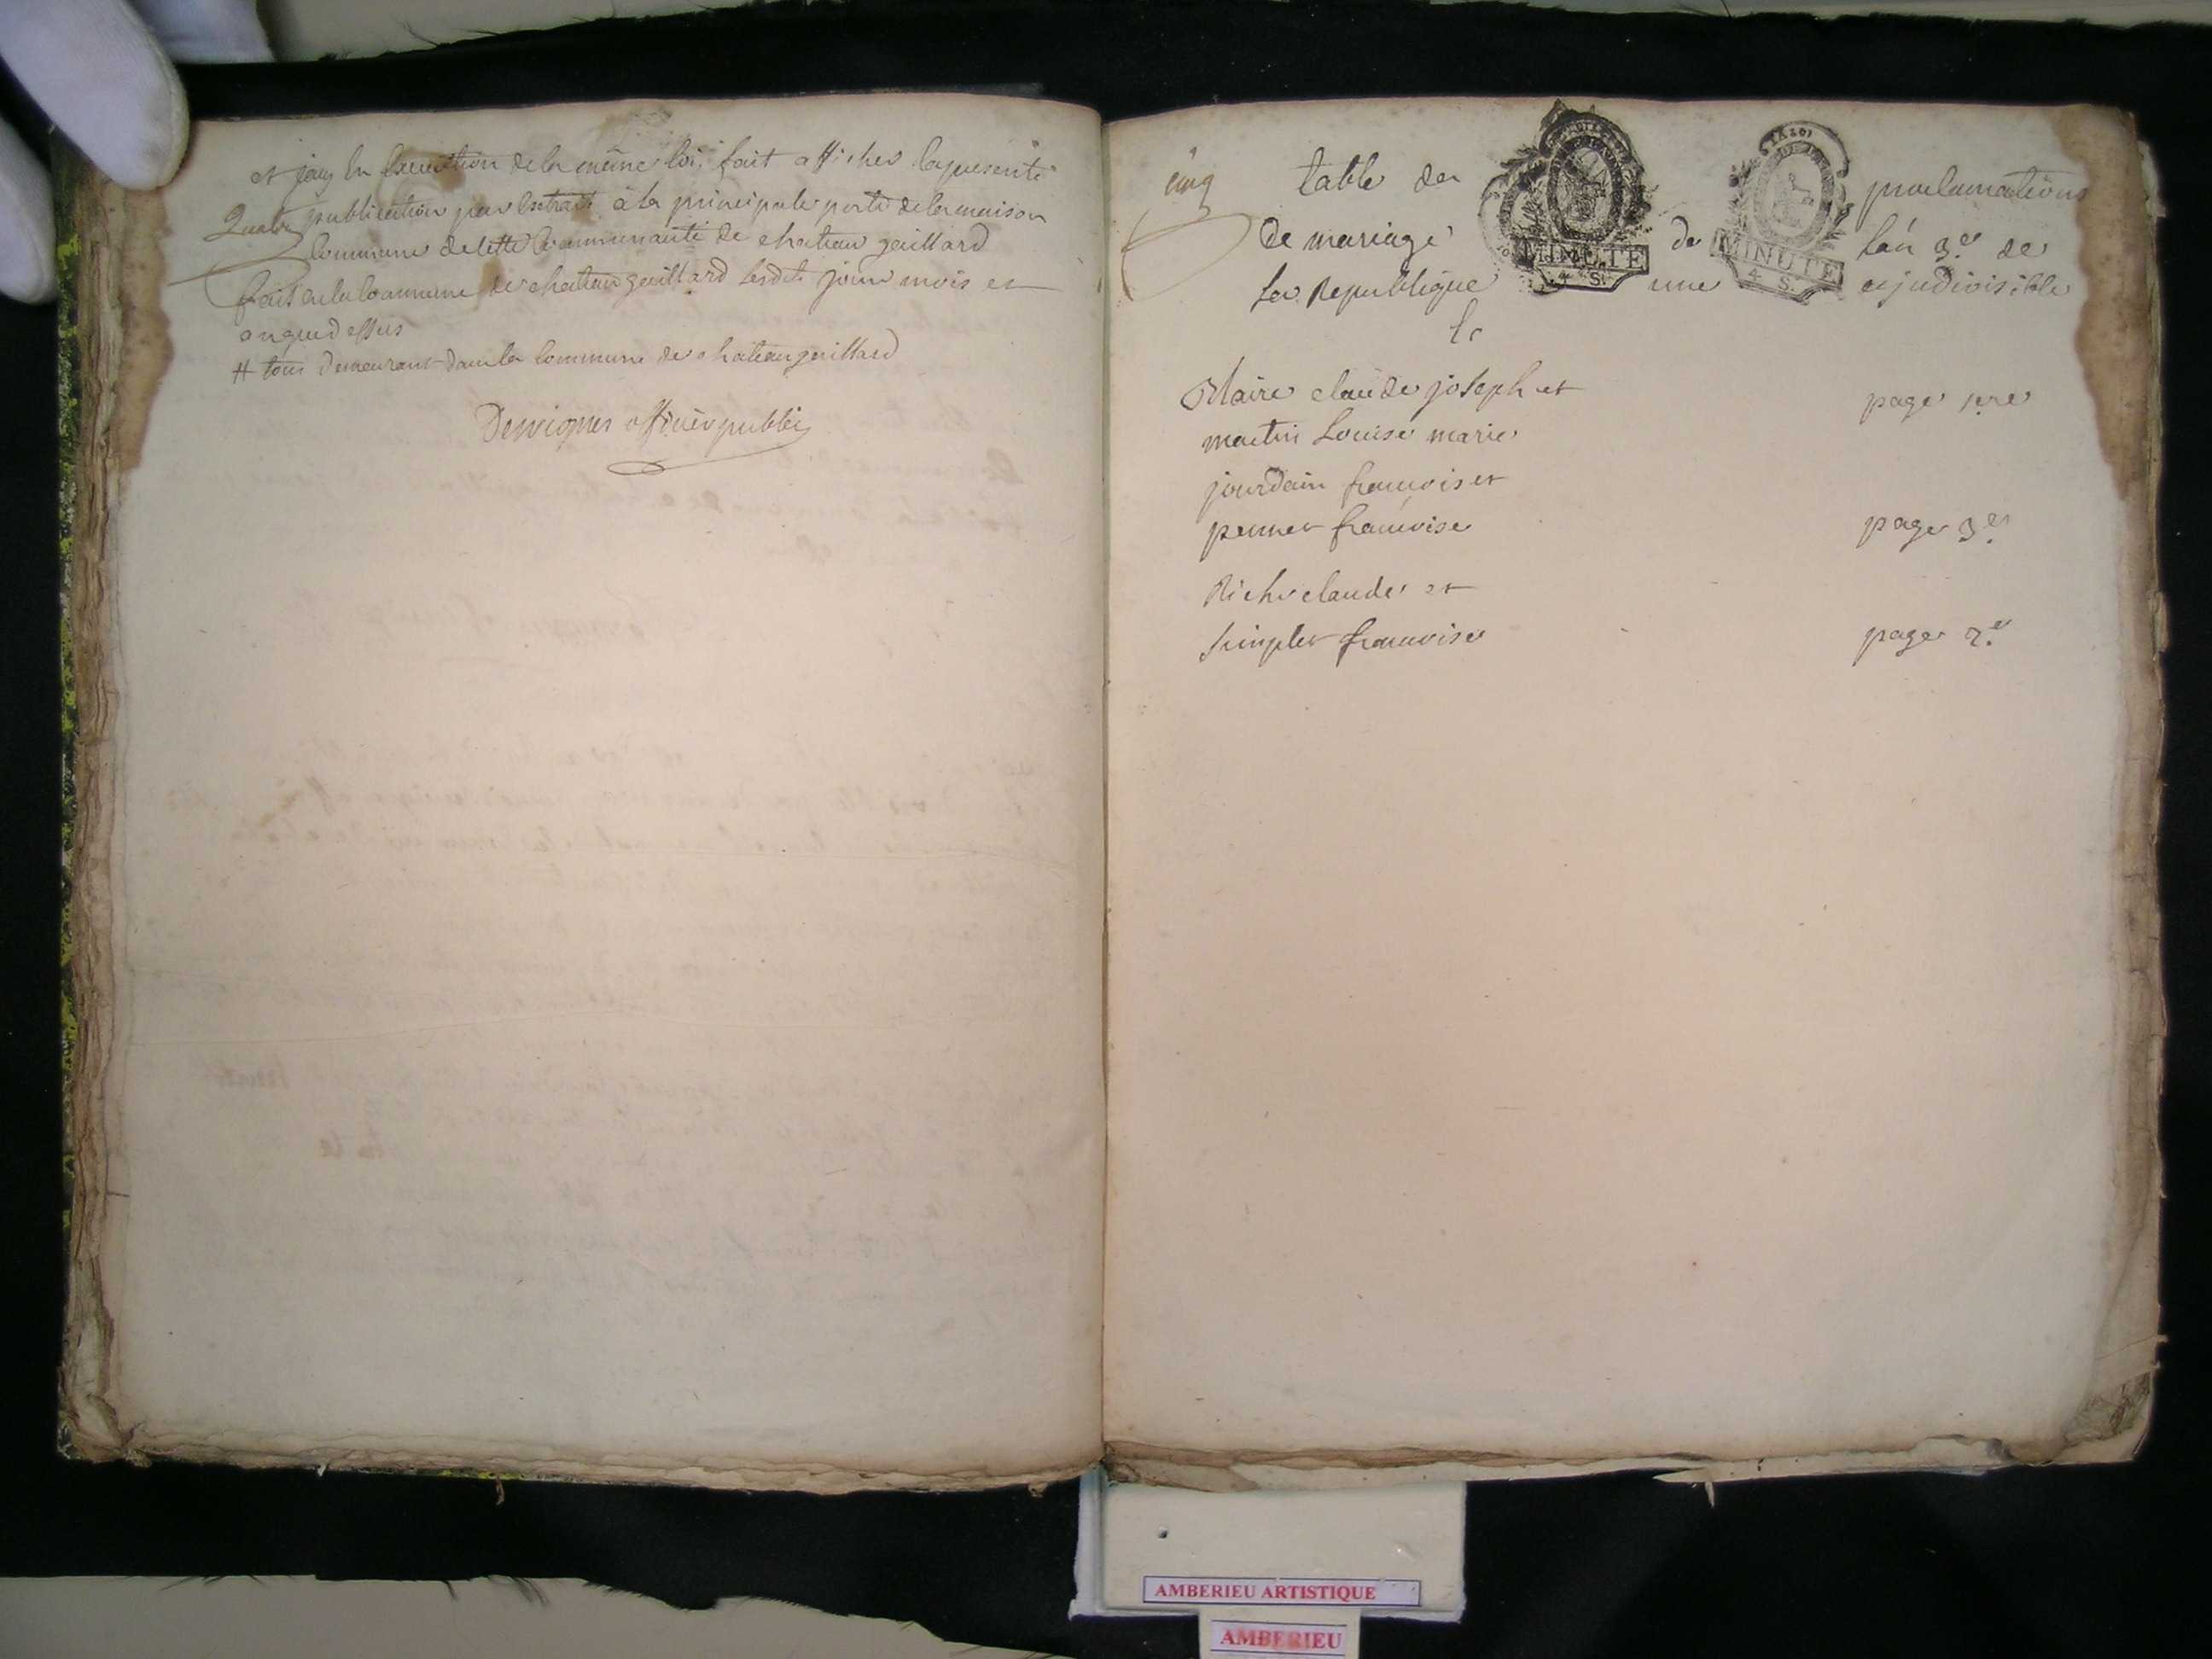 et j'ay En Execution de la même loi, fait afficher la presente
Quatre
publication par Extrait à la principale porte de la maison
Commune de cette Communauté de chateau gaillard
fait en la Commune de chateau gaillard lesdits jour mois et
an que dessus
# tous demeurant dans la Commune de chateaugaillard
Desvignes officier public
cinq
table des proclamations
de mariage de l'an 3.e de
la Republique une et jndivisible
MINUTE
4. S.
MINUTE
4. S.
Maire claude joseph et
martin Louise marie page 1ere
jourdain francois et
perret francoise page 3.e
Riche claude et
Simplet francoise page 2.e
AMBERIEU ARTISTIQUE
AMBERIEU